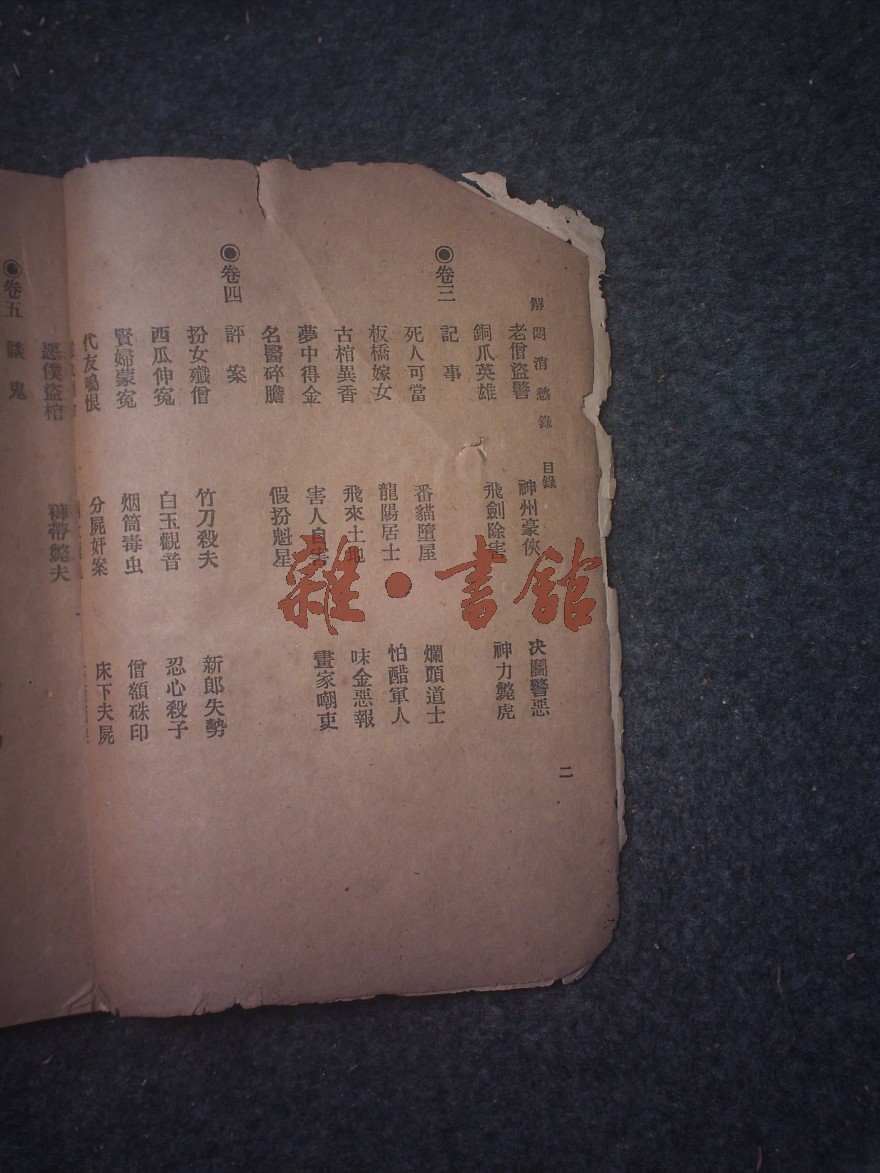 解悶消愁錄 目錄 二
老僧盜警 神州豪俠 决鬭警惡
銅爪英雄 飛劍除害 神力斃虎
◉卷三 記事
死人可當 番貓墮屋 爛頭道士
板橋嫁女 龍陽居士 怕醋軍人
古棺異香 飛來土地 味金惡報
夢中得金 害人自害 畫家嘲吏
名醫碎膽 假扮魁星
◉卷四 評案
扮女殲僧 竹刀殺夫 新郎失勢
西瓜伸冤 白玉觀音 忍心殺子
賢婦蒙冤 烟筒毒虫 僧額硃印
代友鳴恨 分屍奸案 床下夫屍
惡僕盜棺 褲帶斃夫
◉卷五 談鬼
雜·書館